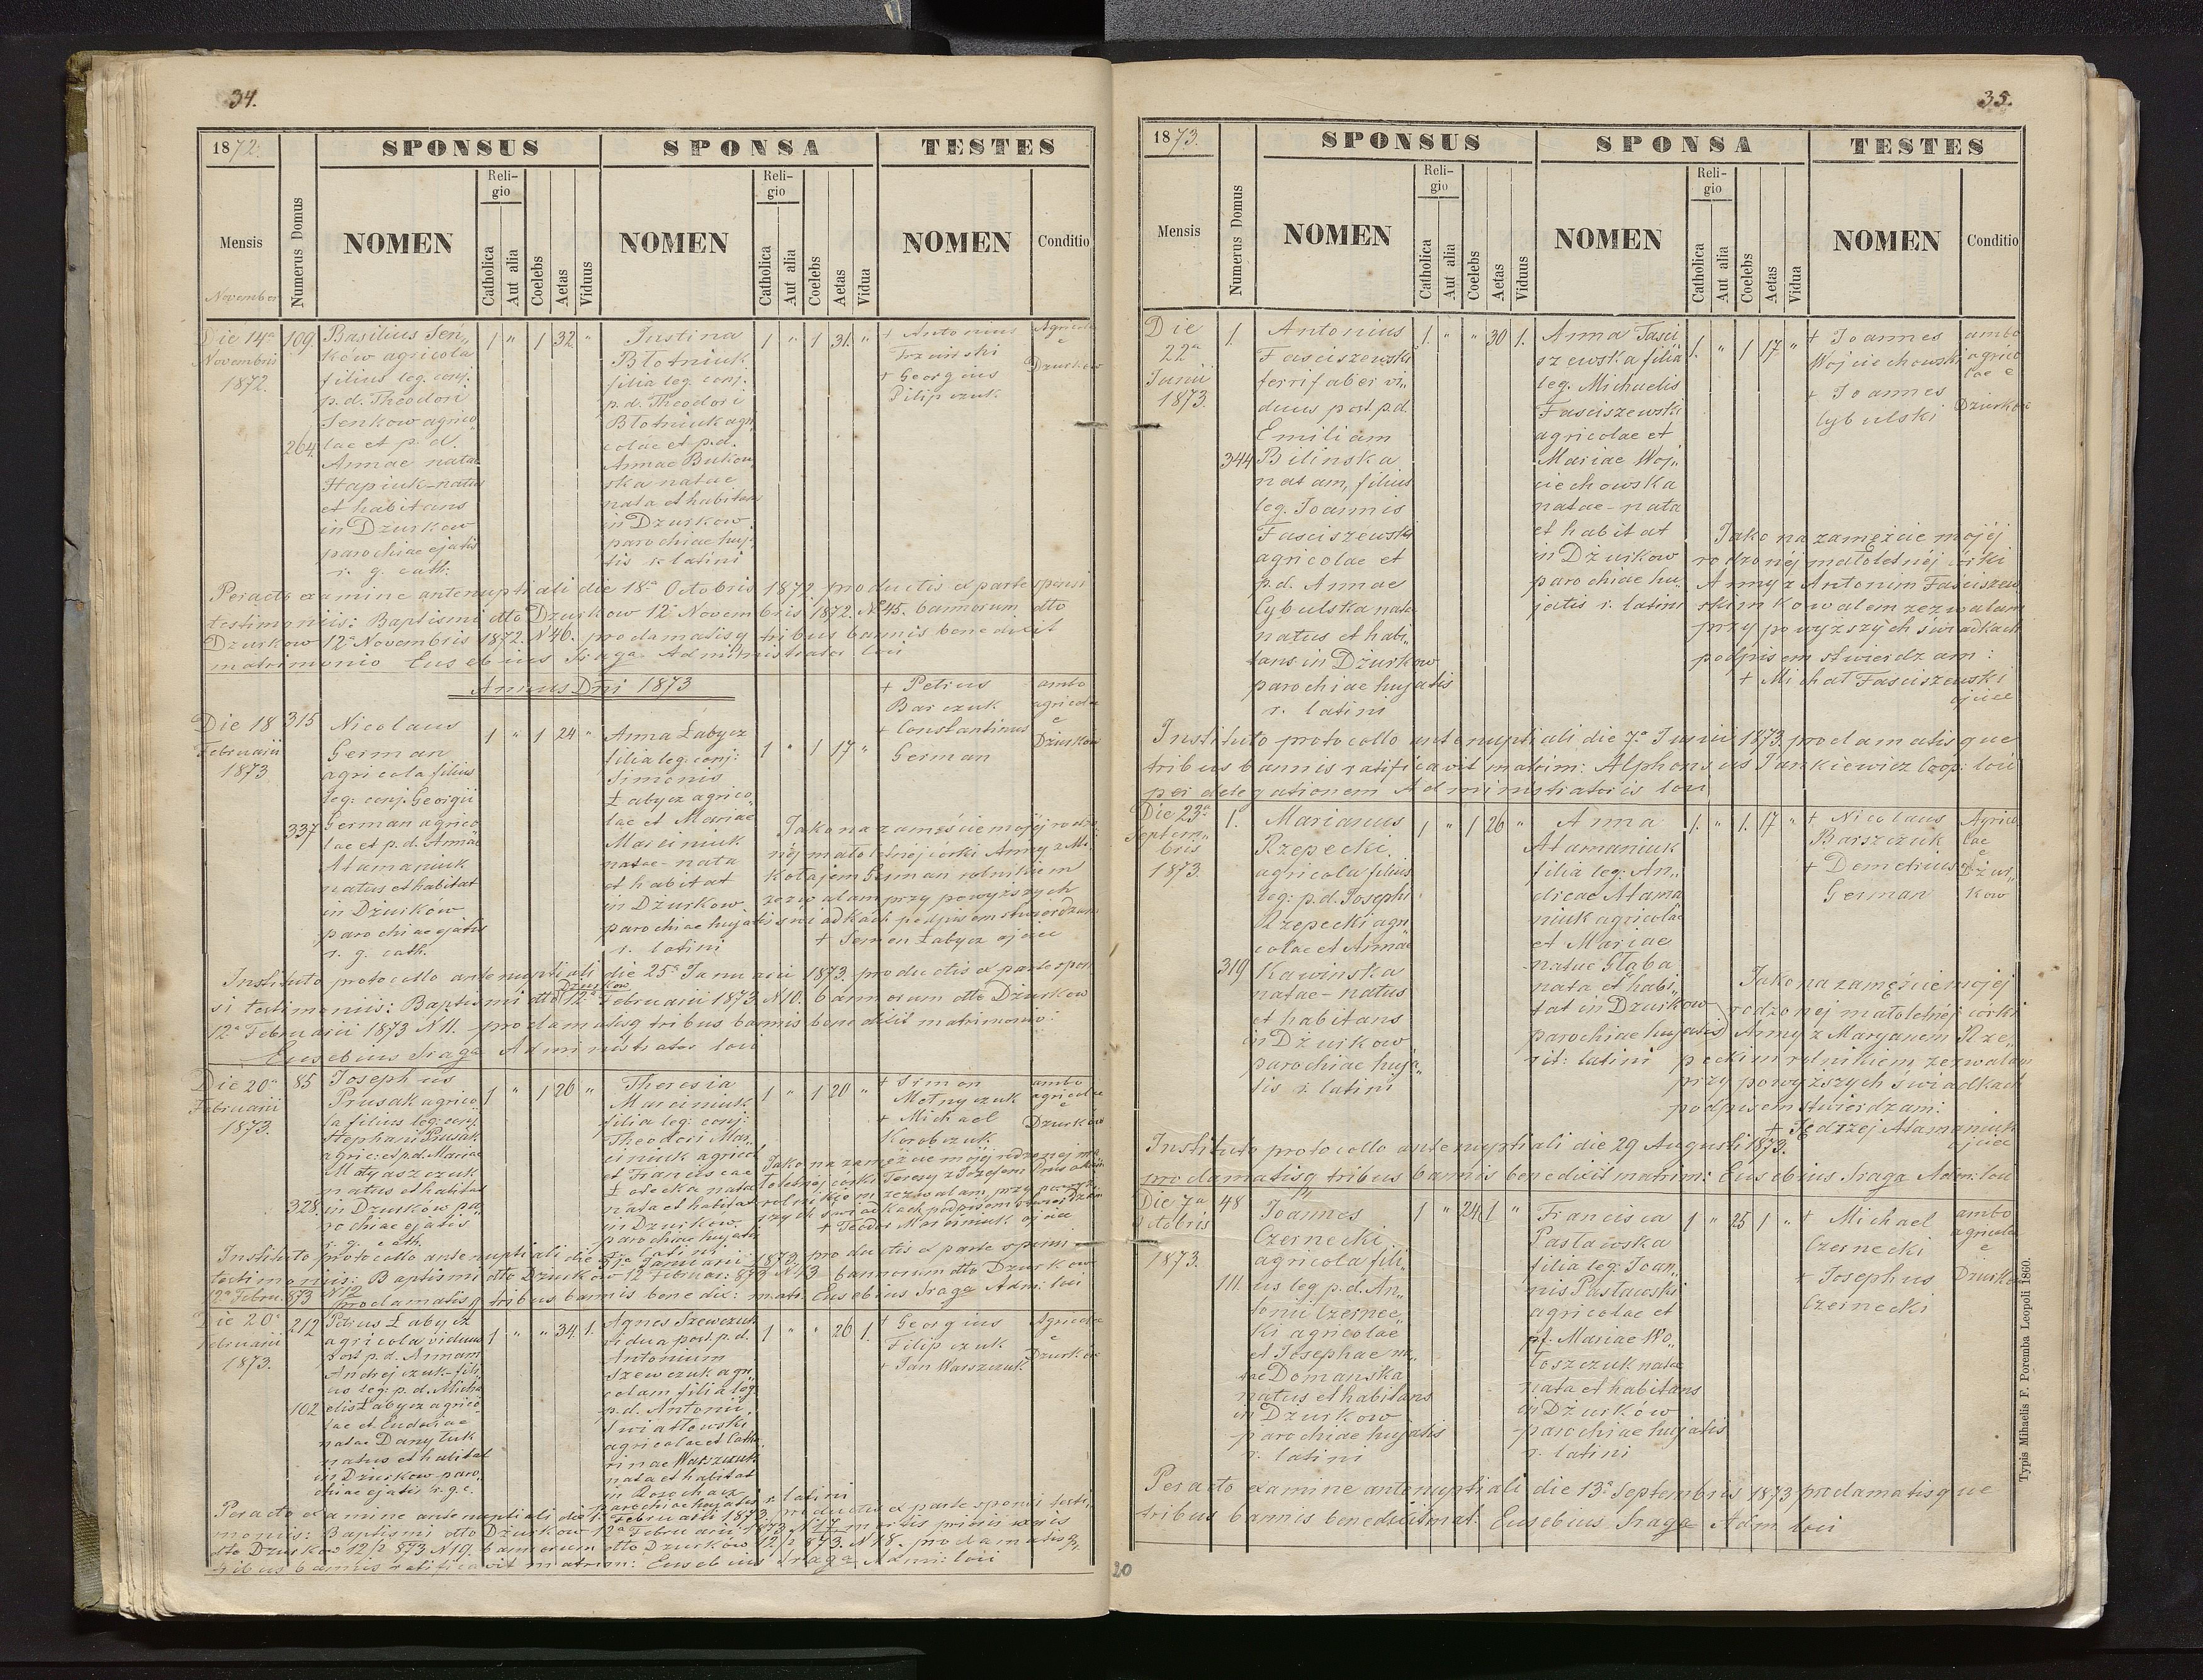 34.
1872.
SPONSUS
SPONSA
TESTES
Mensis
November
Numerus Domus
NOMEN
Religio
Catholica
Aut alia
Coelebs
Aetas
Viduus
NOMEN
Religio
Catholica
Aut alia
Coelebs
Aetas
Vidua
NOMEN
Conditio
Die 14ª
Novembris
1872.
109
264
Basilius Sen„
kow agricola
filius leg. conj.
p. d. Theodori
Senkow agrico„
lae et p. d.
Annae natae
Hapiuk - natus
et habitans
in Dżurkow
parochiae ejatis
r. g. cath.
1 „ 1 32 „
Justina
Błotniuk
filia leg. conj.
p. d. Theodori
Błotniuk agri„
colae et p. d.
Annae Bukow„
ska natae
nata et habitans
in Dżurkow
parochiae huj„
tis r. latini
1 „ 1 31. „
+ Antonius
+ Georgius
Pilipczuk
Agricolae
e
Dzurkow
Peracto examine antenuptiali die 18ª Octobris 1872. productis ex parte sponsi
testimoniis: Baptismi dtto Dzurkow 12ª Novembris 1872. N 45. bannorum dtto
Dzurkow 12ª Novembris 1872. N 46. proclamatisq tribus bannis benedixit
matrimonio Eusebius Sraga Administrator loci
Annus Dni 1873
Die 18
Februarii
1873
315
337
Nicolaus
German
agricola filius
leg: conj. Georgii
German agrico„
lae et p. d. Annae
Atamaniuk
natus et habitat
in Dżurków
parochiae ejatis
r. g. cath.
1 „ 1 24 „
Anna Łabycz
filia leg: conj:
Simonis
Łabycz agrico„
lae et Mariae
Marciniuk
natae - nata
et habitat
in Dzurkow
parochiae hujatis
r. latini
1 „ 1 17 „
+ Petrus
Barczuk
+ Constantinus
German
ambo
agricolae
e
Dżurkow
Jako na zamęście mojéj rodzo„
néj małoletniéj córki Anny z Mi„
kołajem German rolnikiem
zezwalam przy powyższych
świadkach podpisem stwierdzam
+ Semen Łabycz ojciec
Instituto protocollo antenuptiali die 25ª Januarii 1873. productis ex parte spon„
si testimoniis: Baptismi dtto Dzurkow 12ª Februarii 1873 N 10. bannorum dtto Dżurkow
12ª Februarii 1873 N 11. proclamatisq tribus bannis benedixit matrimonio:
Eusebius Sraga Administrator loci
Die 20ª
Februarii
1873.
85
328.
Josephus
Prusak agrico„
la filius leg: conj.
Stephani Prusak
agric: et p. d. Mariae
Matyaszczuk
natus et habitat
in Dzurków pa„
rochiae ejatis
r. g. cath.
1 „ 1 26 „
Theresia
Marciniuk
filia leg: conj:
Theodori Mar„
ciniuk agricol
et Franciscae
natae
nata et habitat
in Dzurków
parochiae hujatis
latini
1 „ 1 20 „
+ Simon
Motryczuk
+ Michael
Korobczuk
ambo
agricolae
e
Dzurków
Jako na zamęźcie mojéj rodzonej ma„
łoletniej córki Teresy z Józefem Prusakiem
rolnikiem zezwalam, przy powyż„
szych świadkach podpisem stwierdzam
+ Teodor Marciniuk ojciec
Instituto protocollo antenuptiali die Januarii 1873. productis ex parte sponsi
testimoniis: Baptismi dtto Dzurkow 12 Februar: 873 N 13 bannorum dtto Dzurkow
12ª Febru. 873 N 12 proclamatisq tribus bannis benedix: matr: Eusebius Sraga Adm: loci
Die 20ª
Februarii
1873.
212
102
Petrus Łabycz
agricola viduus
post p. d. Annam
Andrejczuk - fili„
us leg: p. d. Micha
elis Łabycz agrico„
lae et Eudociae
natae Danyluk
natus et habitat
in Dzurkow paro„
chiae ejatis r. g. c.
1 „ „ 34. 1.
Agnes Szewczuk
vidua post. p. d.
Antonium
Szewczuk agri„
colam filia leg.
p. d. Antonii
Swiatłowski
agricolae et Catha„
rinae Warszczuk
nata et habitat
in Rosochacz
parochiae hujatis r. latini
1 „ „ 26 1.
+ Georgius
Filipczuk
+ Jan Warszczuk
Agricolae
e
Dzurkow
Peracto examine antenuptiali die 1. Februarii 1873. productis ex parte sponsi testi„
moniis: Baptismi dtto Dzurkow 12ª Februarii 1873 N 17 mortis primi uxoris
dtto Dzurkow 12/2 873 N 19. bannorum dtto Dzurkow 12/2 873. N 18. proclamatisq
tribus bannis ratificavit matrim: Eusebius Sraga Admi: loci
35.
1873.
SPONSUS
SPONSA
TESTES
Mensis
Numerus Domus
NOMEN
Religio
Catholica
Aut alia
Coelebs
Aetas
Viduus
NOMEN
Religio
Catholica
Aut alia
Coelebs
Aetas
Vidua
NOMEN
Conditio
Die
22ª
Junii
1873.
1.
344
Antonius
Fasciszewski
ferrifaber vi„
duus post. p. d.
Emiliam
Bilinska
natam, filius
leg. Joannis
Fasciszewski
agricolae et
p. d. Annae
Cybulska nata
natus et habi„
tans in Dżurkow
parochiae hujatis
r. latini
1. „ „ 30 1.
Anna Fasci
szewska filia
leg. Michaelis
Fasciszewski
agricolae et
Mariae Woj„
ciechowska
natae - nata
et habitat
in Dżurkow
parochiae hu„
jatis r. latini
1. „ 1 17 „
+ Joannes
Wojciechowski
+ Joannes
Cybulski
ambo
agrico
lae e
Dżurkow
Jako na zamęźcie mojéj
rodzonéj małoletnéj córki
Anny z Antonim Fasciszew
skim kowalem zezwalam
przy powyższych świadkach
podpisem stwierdzam:
+ Michał Fasciszewski
ojciec
Instituto protocollo antenuptiali die 7ª Junii 1873. proclamatisque
tribus bannis ratificavit matrim: Alphonsus Pankiewicz Coop: loci
per delegationem Administratoris loci
Die 23ª
Septem„
bris
1873.
1.
319
Marianus
Rzepecki
agricola filius
leg: p. d. Josephi
Rzepecki agri
colae et Annae
Kawinska
natae - natus
et habitans
in Dżurkow
parochiae huja„
tis r. latini
1 „ 1 26 „
Anna
Atamaniuk
filia leg: An„
dreae Atama
niuk agricolae
et Mariae
natae Głaba
nata et habi„
tat in Dzurkow
parochiae hujatis
rit: latini
1. „ 1. 17 „
+ Nicolaus
Barszczuk
+ Demetrius
German
Agrico
lae
e
Dżur„
kow
Jako na zamęście mojéj
rodzonéj małoletnéj córki
Anny z Maryanem Rze„
peckim rolnikiem zezwalam
przy powyższych świadkach
podpisem stwierdzam:
+ Jędrzej Atamaniuk
ojciec
Instituto protocollo antenuptiali die 29 Augusti 1873.
proclamatisq tribus bannis benedixit matrim: Eusebius Sraga Adm: loci
Die 7ª
Octobris
1873.
48
111.
Joannes
Czernecki
agricola fili„
us leg p. d. An„
tonii Czernec„
ki agricolae
et Josephae na„
tae Domanska
natus et habitans
in Dżurkow
parochiae hujatis
r. latini
1 „ 24 1 „
Francisca
Pasławska
filia leg: Joan„
nis Pasławski
agricolae et
Mariae Wo„
łoszczuk natae
nata et habitans
in Dżurków
parochiae hujatis
r. latini
1 „ 25 1 „
+ Michael
Czernecki
+ Josephus
Czernecki
ambo
agricolae
e
Dżurkow
Peracto examine antenuptiali die 13ª Septembris 1873 proclamatisque
tribus bannis benedixit mat: Eusebius Sraga Adm. loci
20
Typis Mihaelis F. Poremba Leopoli 1860.